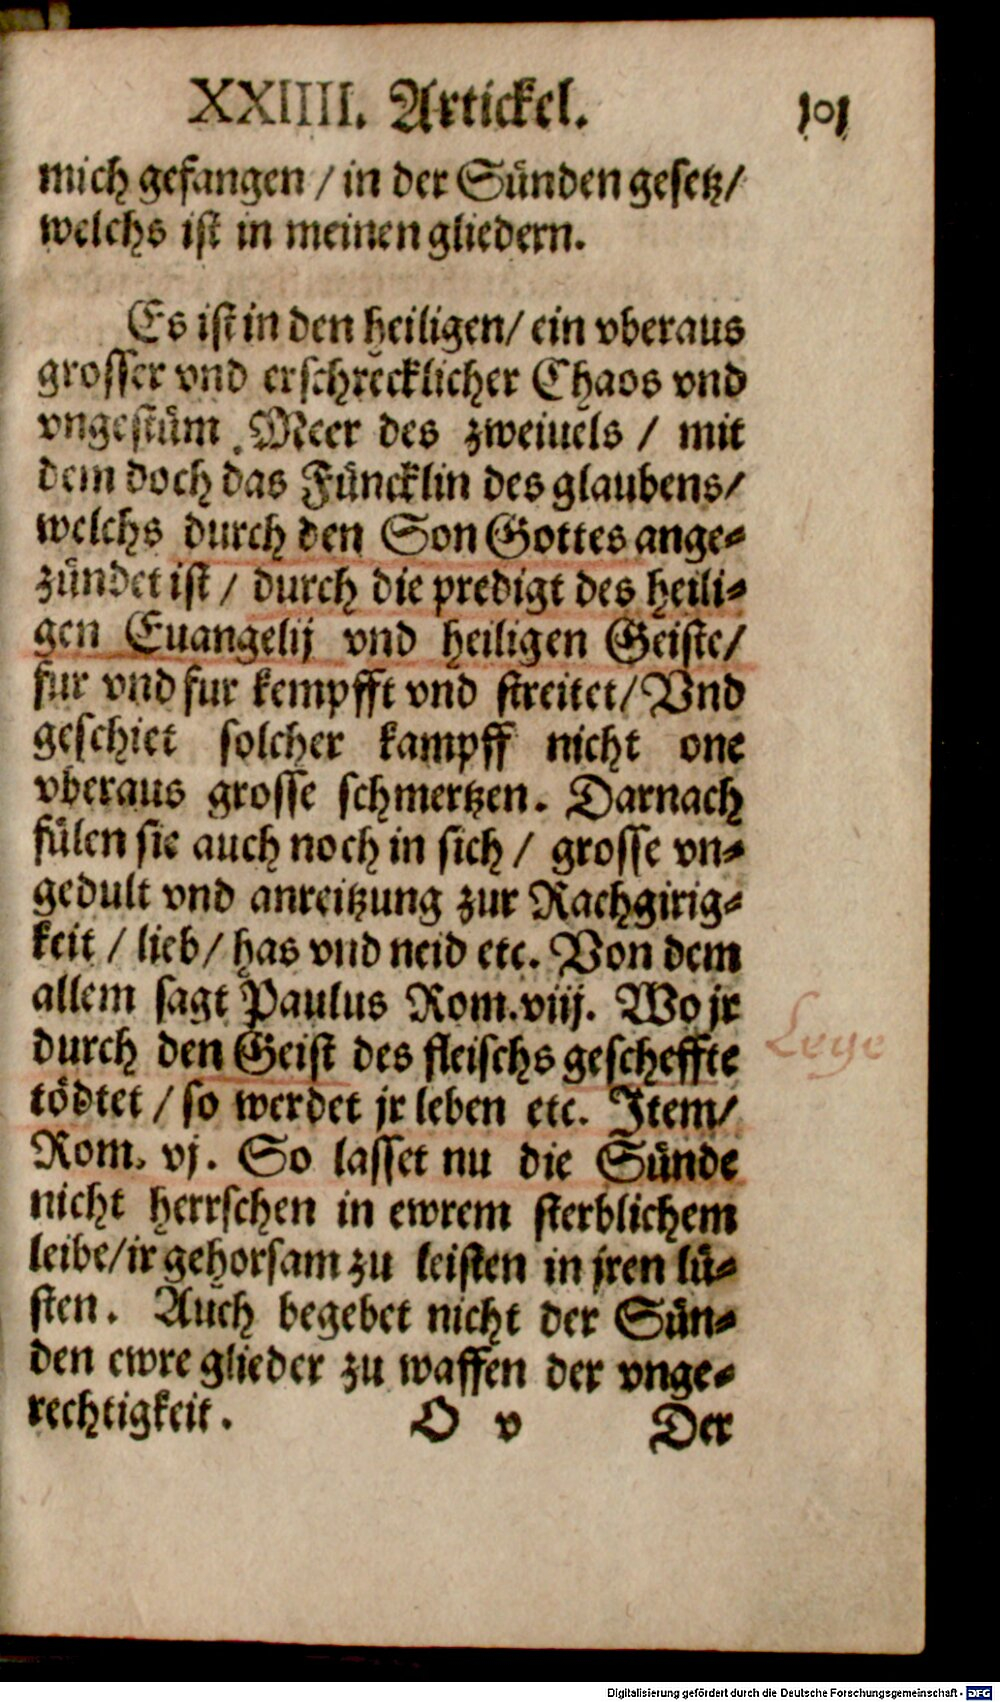 XXIIII. Artickel. 101
mich gefangen / in der Sünden gesetz/
welchs ist in meinen gliedern.
Es ist in den heiligen/ ein vberaus
grosser vnd erschrecklicher Chaos vnd
vngestüm Meer des zweiuels / mit
dem doch das Füncklin des glaubens/
welchs durch den Son Gottes ange-
zündet ist / durch die predigt des heili-
gen Euangelij vnd heiligen Geiste/
fur vnd fur kempfft vnd streitet/ Vnd
geschiet solcher kampff nicht one
vberaus grosse schmertzen. Darnach
fülen sie auch noch in sich / grosse vn-
gedult vnd anreitzung zur Rachgirig-
keit / lieb/ has vnd neid etc. Von dem
allem sagt Paulus Rom.viij. Wo jr
durch den Geist des fleischs gescheffte
Lege
tödtet / so werdet jr leben etc. Item/
Rom. vj. So lasset nu die Sünde
nicht herrschen in ewrem sterblichem
leibe/ir gehorsam zu leisten in jren lü-
sten. Auch begebet nicht der Sün-
den ewre glieder zu waffen der vnge-
rechtigkeit. O v Der
Digitalisierung gefördert durch die Deutsche Forschungsgemeinschaft - DFG